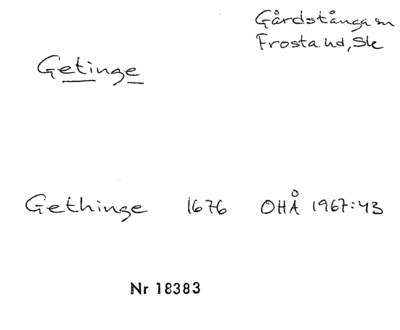 Gårdstånga sn
Frosta hd, Sk
Getinge
Gethinge 1676 OHÅ 1967:43
Nr 18383